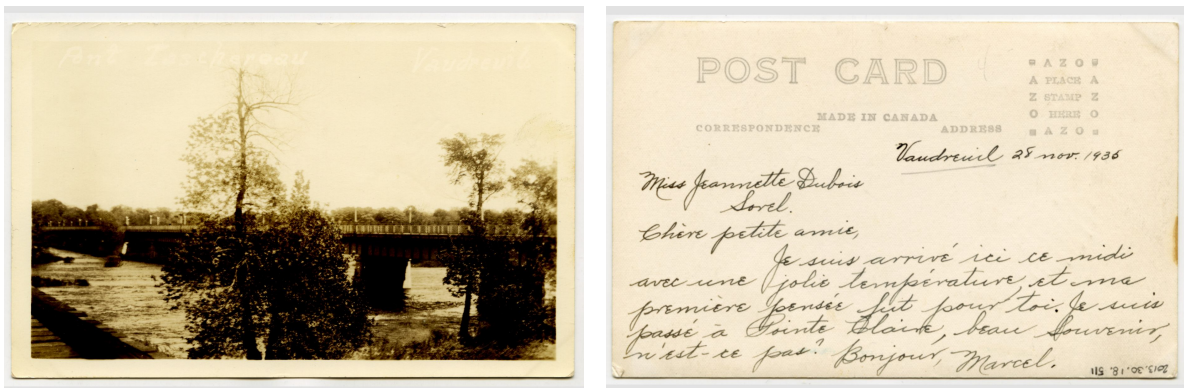 Pont Taschereau Vaudreuil
POST CARD
MADE IN CANADA
CORRESPONDENCE ADDRESS
AZO
A PLACE A
Z STAMP Z
O HERE O
AZO
Vaudreuil 28 nov. 1936
Miss Jeannette Dubois
Sorel.
Chère petite amie,
Je suis arrivé ici ce midi
avec une jolie température, et ma
première pensée fut pour toi. Je suis
passé à Pointe Claire, beau souvenir,
n'est-ce pas? Bonjour, Marcel.
2013.30.18.511